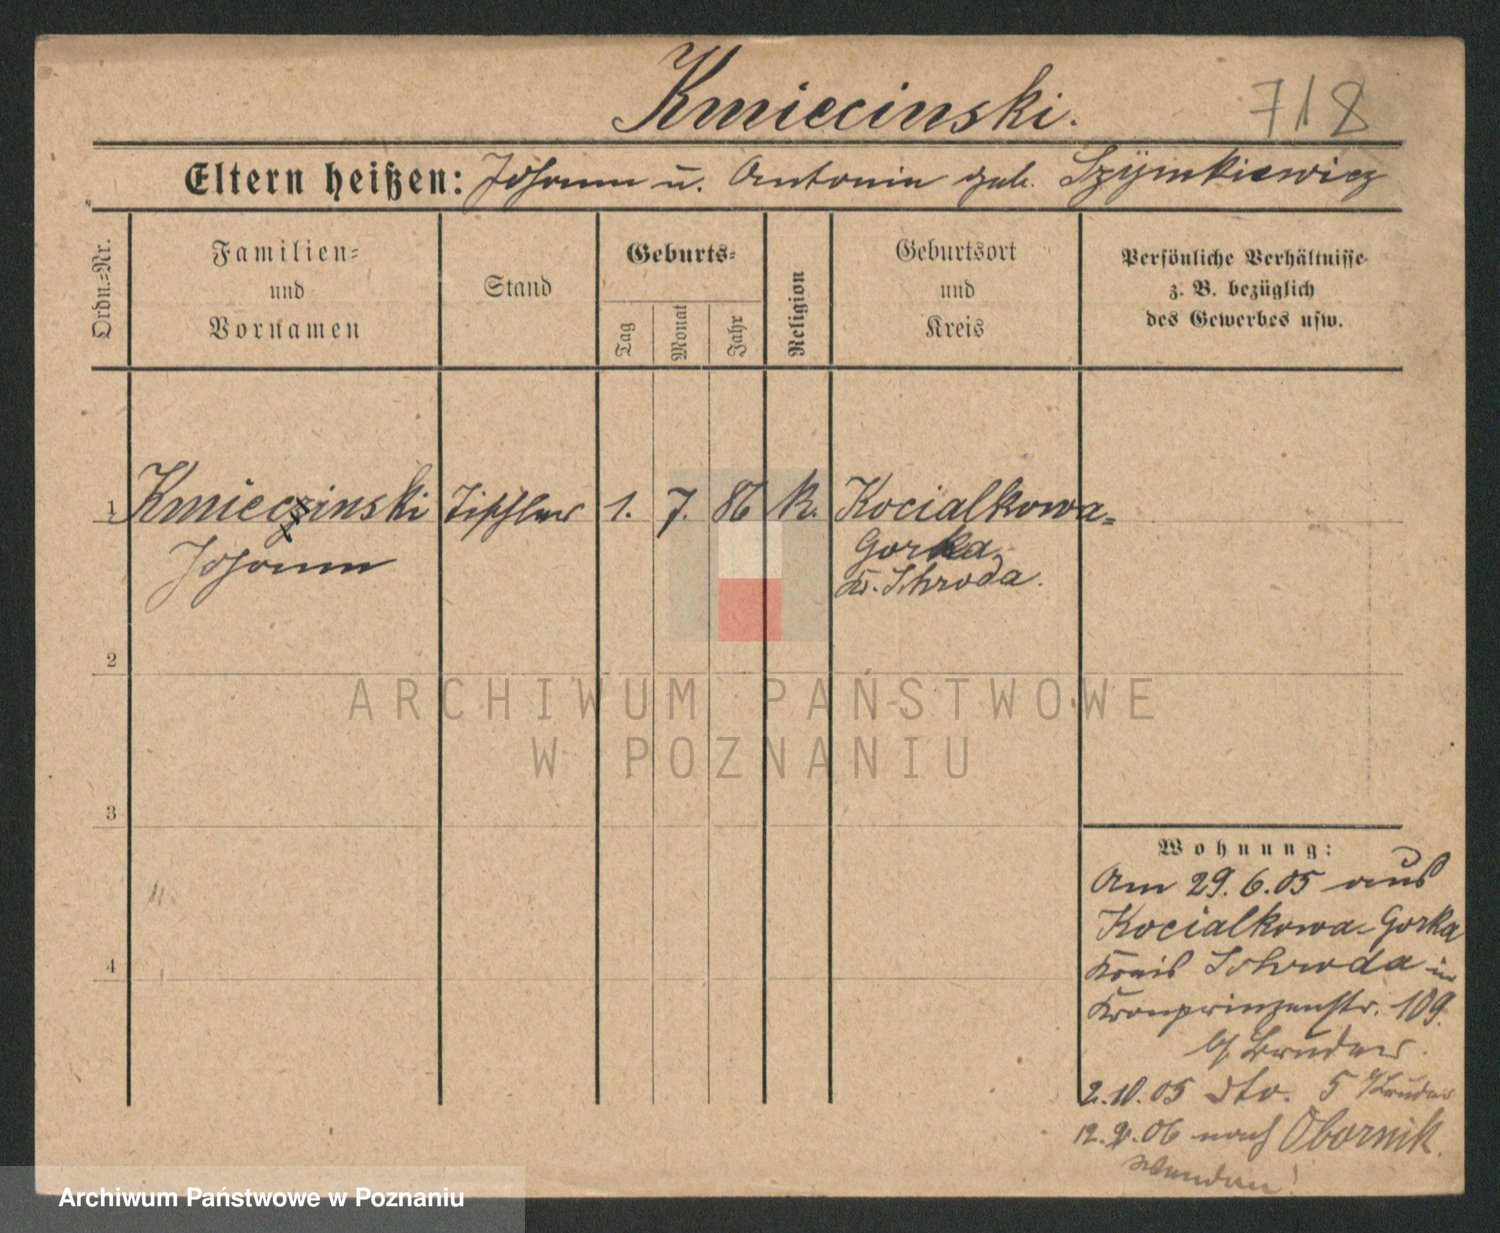 Kmiecinski.
718
Eltern heißen: Johann u. Antonie geb. Szymkiewicz
Ordn.-Nr.
Familien-
und
Vornamen
Stand
Geburts-
Tag
Monat
Jahr
Religion
Geburtsort
und
Kreis
Persönliche Verhältnisse
z. B. bezüglich
des Gewerbes usw.
1
Kmieczinski Tischler 1. 7. 86 k. Kocialkowa-
Johann
Gorka
Kr. Schroda.
2
ARCHIWUM PAŃSTWOWE
W POZNANIU
3
4
Wohnung:
Am 29.6.05 aus
Kocialkowa-Gorka
Kreis Schroda in
Kronprinzenstr. 109.
b/ Bruder.
2.10.05 dto. 5 b/Bruder
12. 06 nach Obornik.
Wenden!
Archiwum Państwowe w Poznaniu